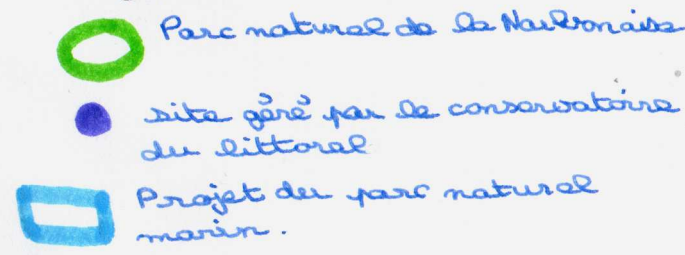 Parc naturel de la Narbonaise
site géré par le conservatoire
du littoral
Projet du parc naturel
marin.